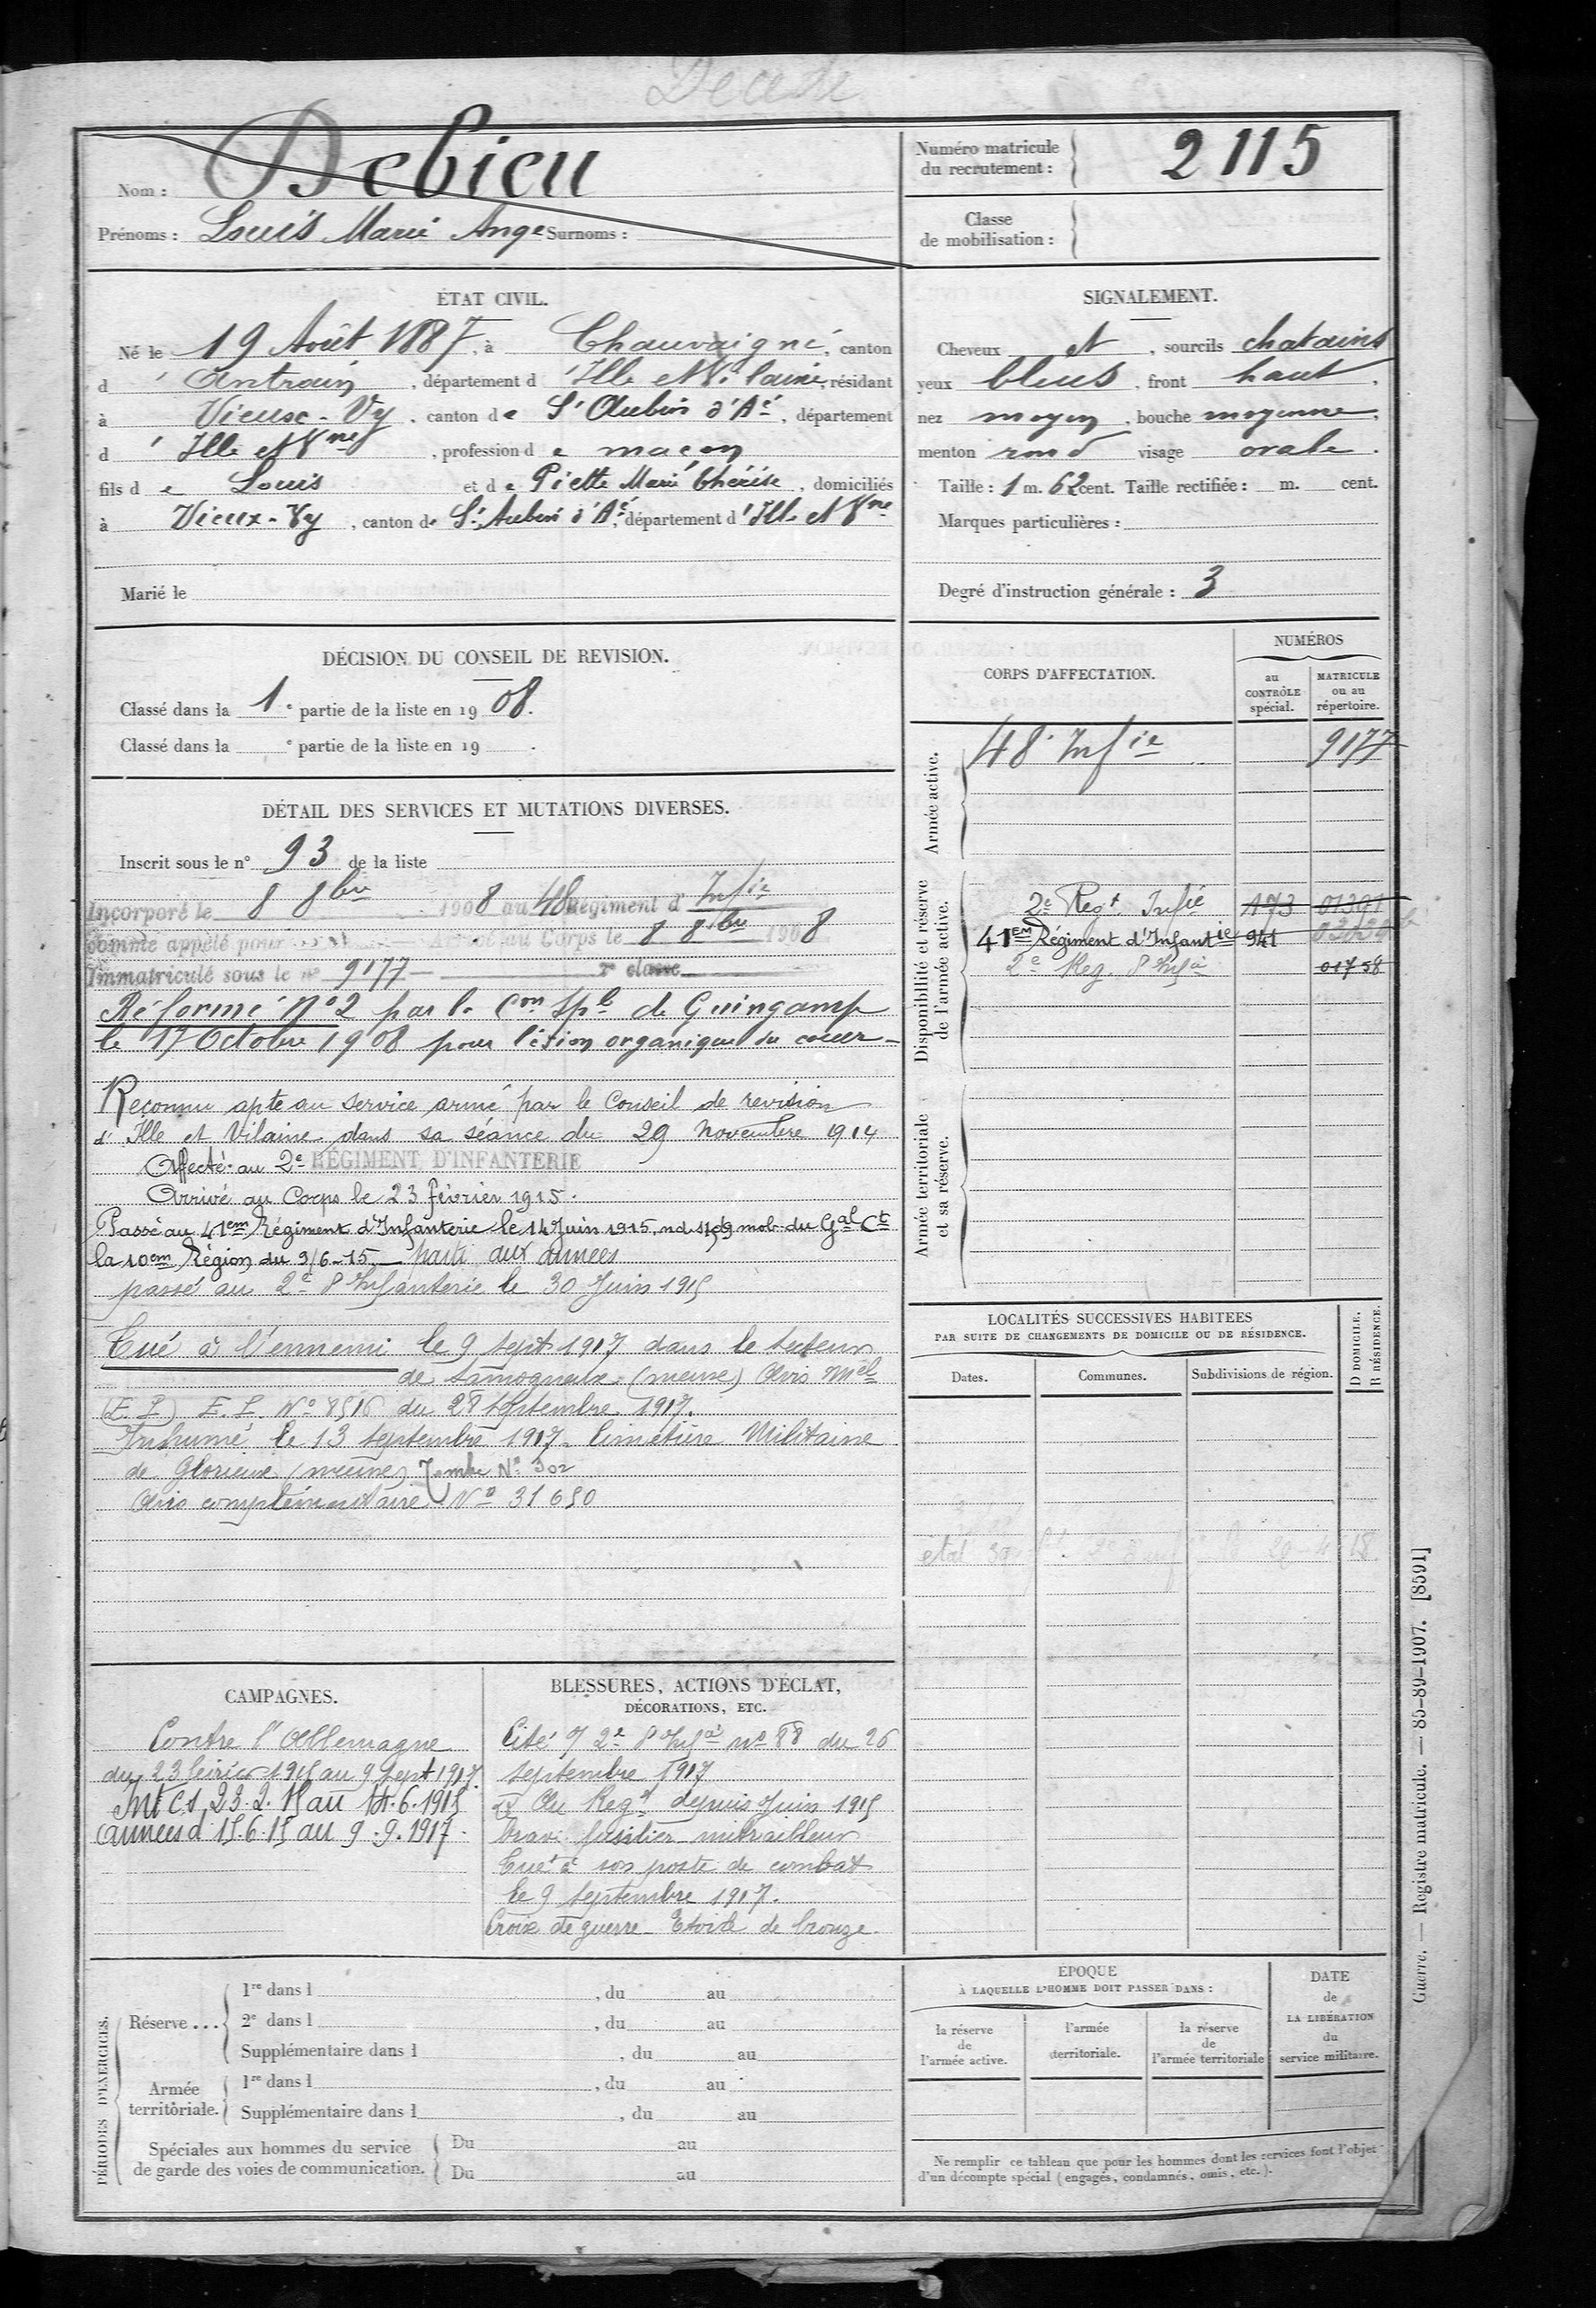 Décédé
Nom : Debieu
Prénoms : Louis Marie Ange Surnoms :
Numéro matricule du recrutement : 2115
Classe de mobilisation :
ÉTAT CIVIL.
Né le 19 Août 1887, à Chauvaigné, canton
d' Antrain, département d'Ille et Vilaine, résidant
à Vieux-Vy, canton de St Aubin d'Aé, département
d' Ille et Vne, profession de maçon
fils de Louis et de Piette Marie Thérèse, domiciliés
à Vieux-Vy, canton de St Aubin d'Aé, département d'Ille et Vne
Marié le
SIGNALEMENT.
Cheveux et, sourcils chatains
yeux bleus, front haut,
nez moyen, bouche moyenne,
menton rond visage ovale.
Taille : 1 m. 62 cent. Taille rectifiée : m. cent.
Marques particulières :
Degré d'instruction générale : 3
DÉCISION DU CONSEIL DE REVISION.
Classé dans la 1e partie de la liste en 1908.
Classé dans la e partie de la liste en 19 .
DÉTAIL DES SERVICES ET MUTATIONS DIVERSES.
Inscrit sous le n° 93 de la liste
Incorporé le 8 8bre 1908 au 48 Régiment d'Infie
comme appelé pour Arrivé au Corps le 8 8bre 1908
Immatriculé sous le n° 9177 2e classe
Réformé N°2 par la Con Sple de Guingamp
le 17 Octobre 1908 pour lésion organique du coeur
Reconnu apte au service armé par le Conseil de revision
d'Ille et Vilaine dans sa séance du 29 Novembre 1914
Affecté au 2e RÉGIMENT D'INFANTERIE
Arrivé au Corps le 23 février 1915.
Passé au 41em Régiment d'Infanterie le 14 Juin 1915, mob. du Gal Ct
la 10em Région du 9/6-15 parti aux armées
passé au 2e d'Infanterie le 30 Juin 1915
Tué à l'ennemi le 9 sept. 1917 dans le secteur
de Samogneux (meuse) Avis Miel
(E. P.) E. P. N° 8516 du 28 septembre 1917.
Inhumé le 13 septembre 1917 Cimetière Militaire
de Glorieux (meuse) Tombe N° 302
Avis complémentaire N° 31650
CORPS D'AFFECTATION.
NUMÉROS
au CONTRÔLE spécial.
MATRICULE ou au répertoire.
Armée active.
48e Infie 9177
Disponibilité et réserve de l'armée active.
2e Regt Infie 173 01391
41EM Régiment d'Infantie 941
2e Reg. d'Infie 01758
Armée territoriale et sa réserve.
LOCALITÉS SUCCESSIVES HABITÉES
PAR SUITE DE CHANGEMENTS DE DOMICILE OU DE RÉSIDENCE.
Dates. Communes. Subdivisions de région. D DOMICILE. R RÉSIDENCE.
CAMPAGNES.
Contre l'Allemagne
du 23 février 1915 au 9 Sept 1917.
Int CS 23.2.15 au 14.6.1915
armées d 15.6.15 au 9.9.1917.
BLESSURES, ACTIONS D'ÉCLAT,
DÉCORATIONS, ETC.
Cité O/ 2e d'Infie n° 88 du 26
septembre 1917
Au Regt depuis Juin 1915
brave fusilier mitrailleur
Tué à son poste de combat
le 9 septembre 1917.
Croix de guerre - Etoile de bronze.
PÉRIODES D'EXERCICES.
Réserve...
1re dans l , du au
2e dans l , du au
Supplémentaire dans l , du au
Armée territoriale.
1re dans l , du au
Supplémentaire dans l , du au
Spéciales aux hommes du service
de garde des voies de communication.
Du au
Du au
ÉPOQUE
À LAQUELLE L'HOMME DOIT PASSER DANS :
la réserve de l'armée active.
l'armée territoriale.
la réserve de l'armée territoriale
DATE de LA LIBÉRATION du service militaire.
Ne remplir ce tableau que pour les hommes dont les services font l'objet
d'un décompte spécial (engagés, condamnés, omis, etc.).
Guerre. — Registre matricule. — 85-89-1907. [8591]